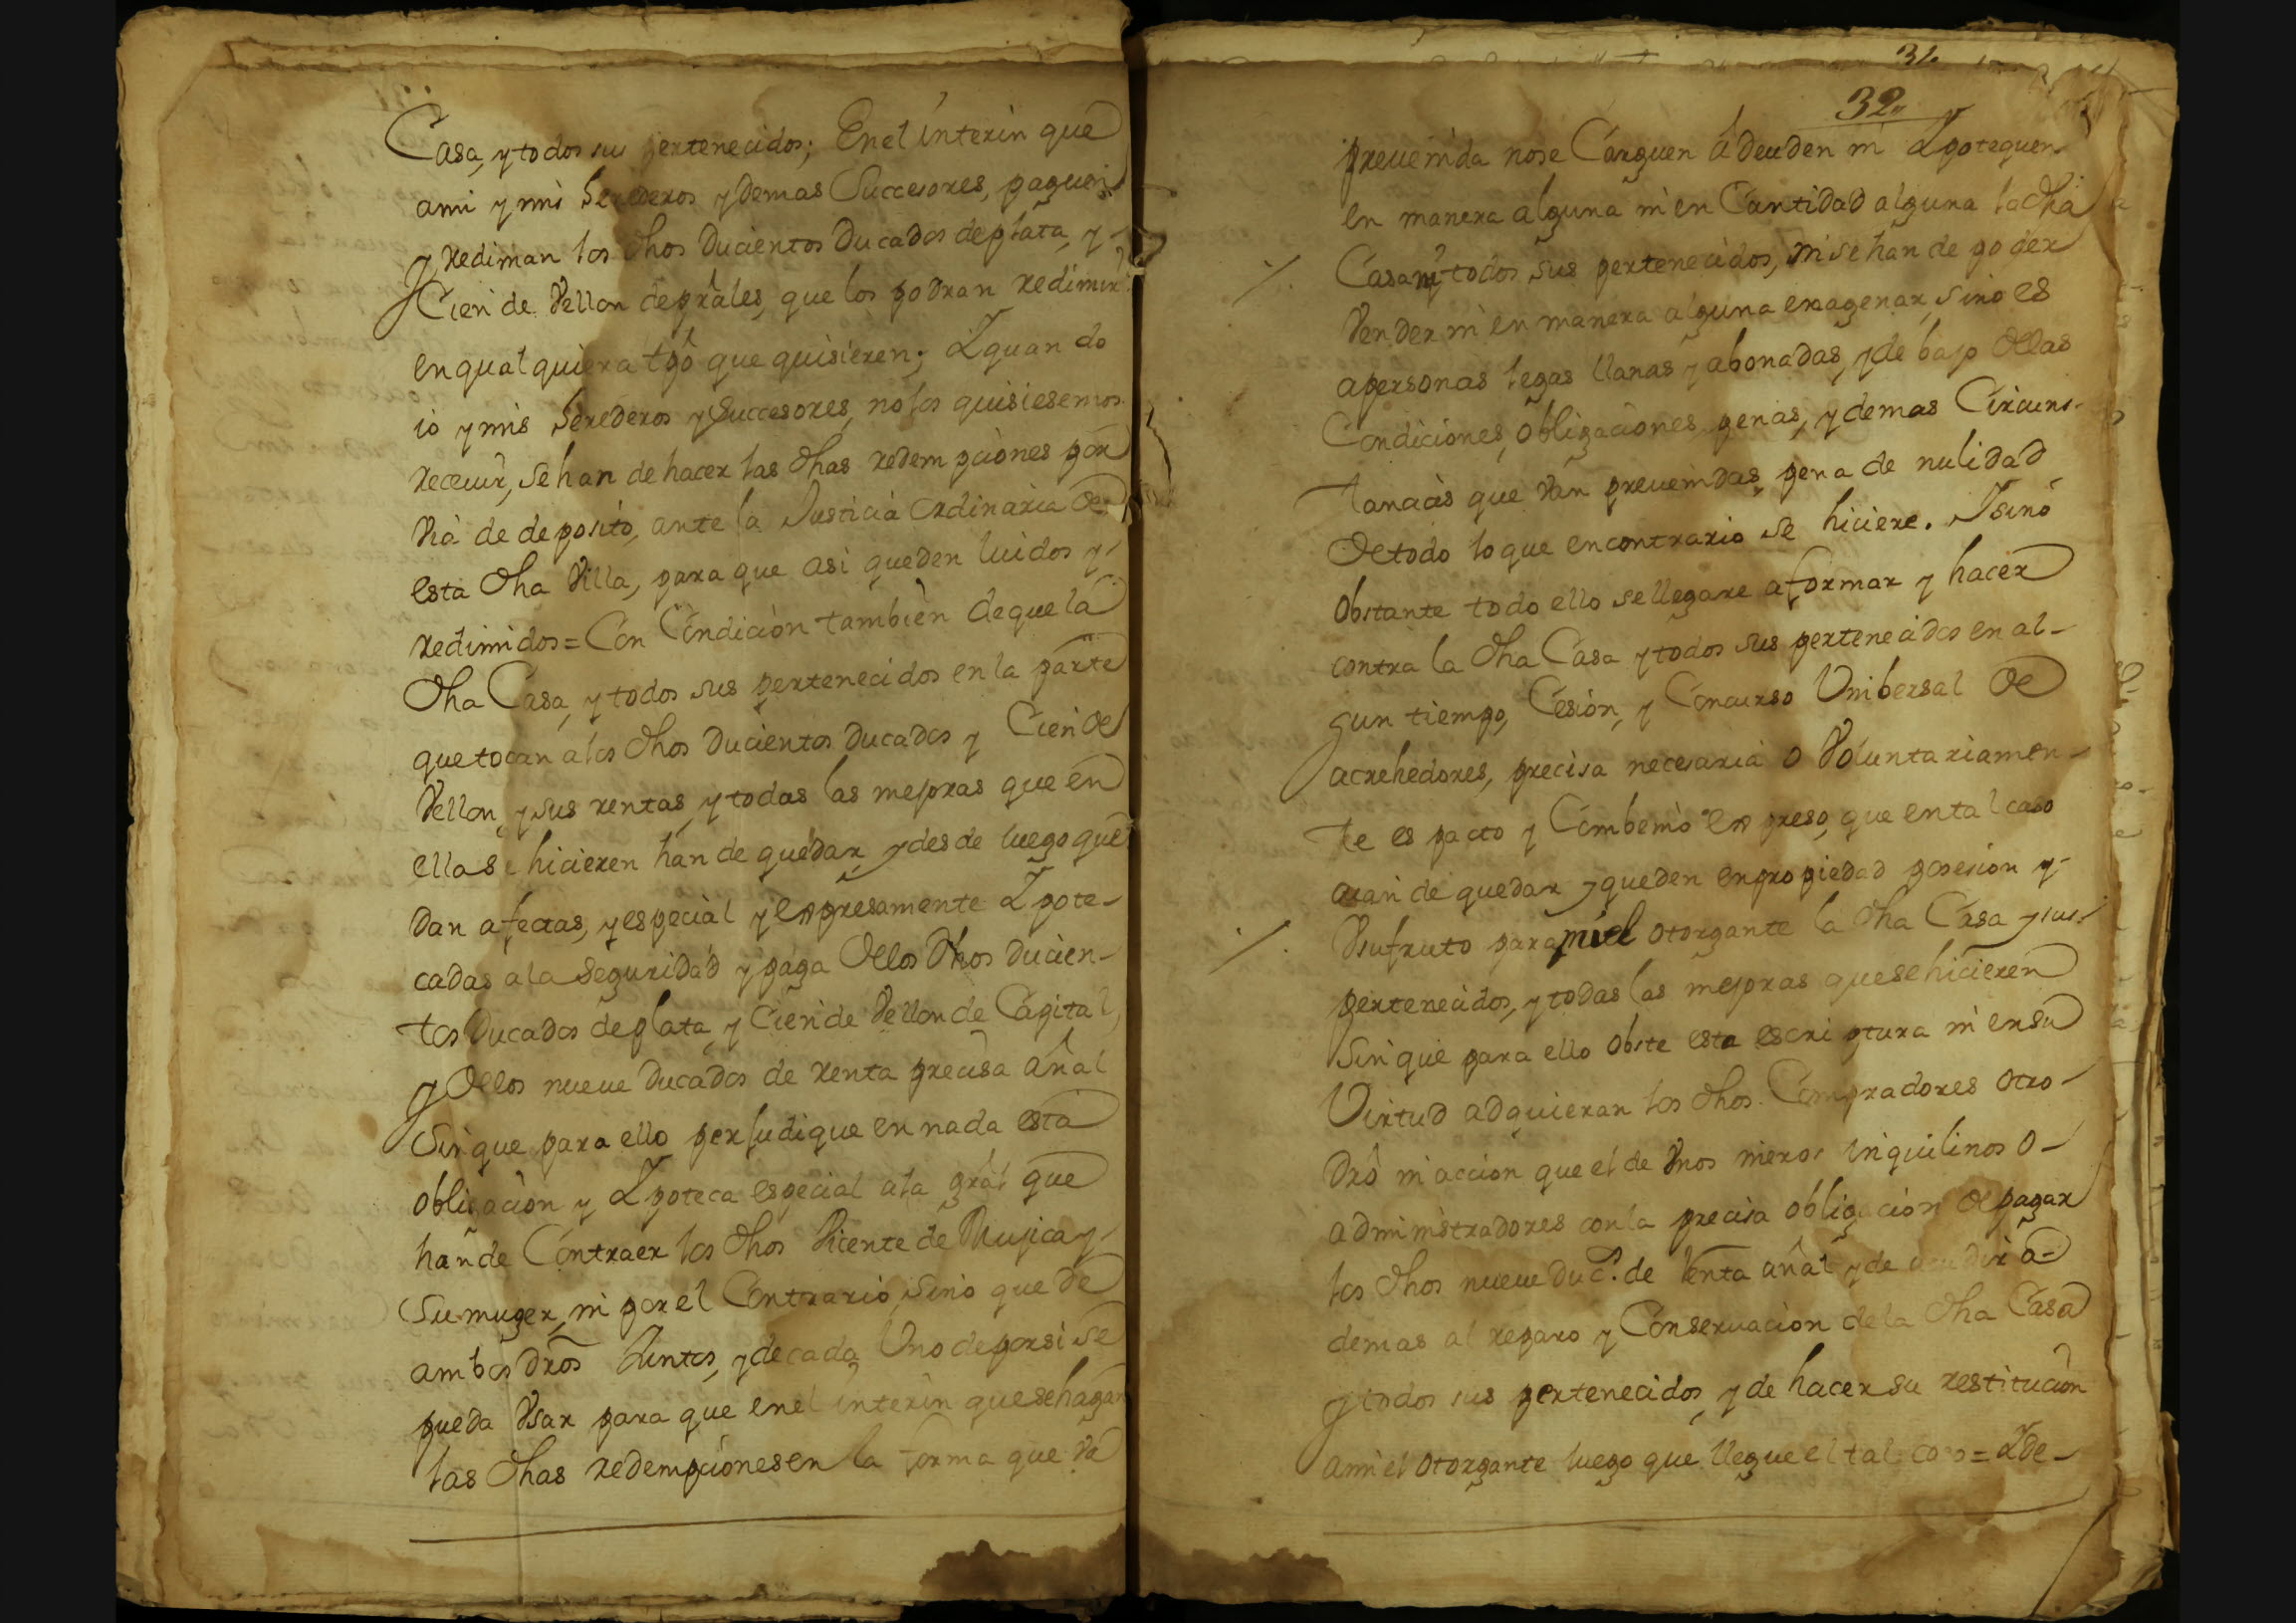 Casa, y todos sus pertenecidos; En el interin que
ami y mis herederos y demas Succesores, paguen
y rediman los dhos ducientos ducados de plata, y
Cien de Vellon de prâles, que los podran redimir
en qualquiera tpô que quisieren; Y quando
io y mis herederos y Succesores, no los quisiesemos
receuir, se han de hacer las dhas redempciones por
via de deposito, ante la Justicia Ordinaria de
esta dha Villa, para que asi queden luidos y
redimidos = Con Condicion tambien de que la
dha Casa, y todos sus pertenecidos en la parte
que tocan a los dhos ducientos ducados y Cien de
Vellon, y sus rentas, y todas las mejoras que en
ellas hicieren han de quedar y desde luego que
dan afectas, y especial y expresamente Ypote-
cadas a la seguridad y paga dellos dhos ducien-
tos Ducados de plata, y Cien de Vellon de Capital,
y dellos nueue ducados de renta precisa añal
Sin que para ello perjudique en nada esta
obligacion y Ypoteca especial a la grâl que
han de Contraer los dhos Vicente de Mujica y
su muger, ni por el Contrario, sino que de
ambos drôs Juntos, y de cada Uno de por si se
pueda Usar para que en el interin que se hagan
las dhas redempciones en la forma que va
31
32
preuenida no se Carguen ádeuden ni Ypotequen
en manera alguna ni en Cantidad alguna la dha
Casa ni todos sus pertenecidos, ni se han de poder
Vender ni en manera alguna enagenar, sino es
apersonas legas llanas y abonadas, y de bajo dellas
Condiciones, obligaciones, penas, y demas Circuns-
tancias que van preuenidas, pena de nulidad
de todo lo que en contrario se hiciere. Y sino
obstante todo ello se llegare a formar y hacer
contra la dha Casa y todos sus pertenecidos en al-
gun tiempo, Cesion, y Concurso Unibersal de
acrehedores, precisa necesaria o Voluntariamen-
te es pacto y Combenio expreso, que en tal caso
aian de quedar y queden en propiedad posesion y
Usufruto para mi el otorgante la dha Casa y sus
pertenecidos, y todas las mejoras que se hicieren
Sin que para ello obste esta escriptura ni en su
Virtud adquieran los dhos Compradores otro
drô ni accion que el de Unos meros inquilinos o
administradores con la precisa obligacion de pagar
los dhos nueue duc.s de renta añal y de acudir a
demas al reparo y Conseruacion de la dha Casa
y todos sus pertenecidos, y de hacer su restitucion
ami el otorgante luego que llegue el tal caso = Y de-